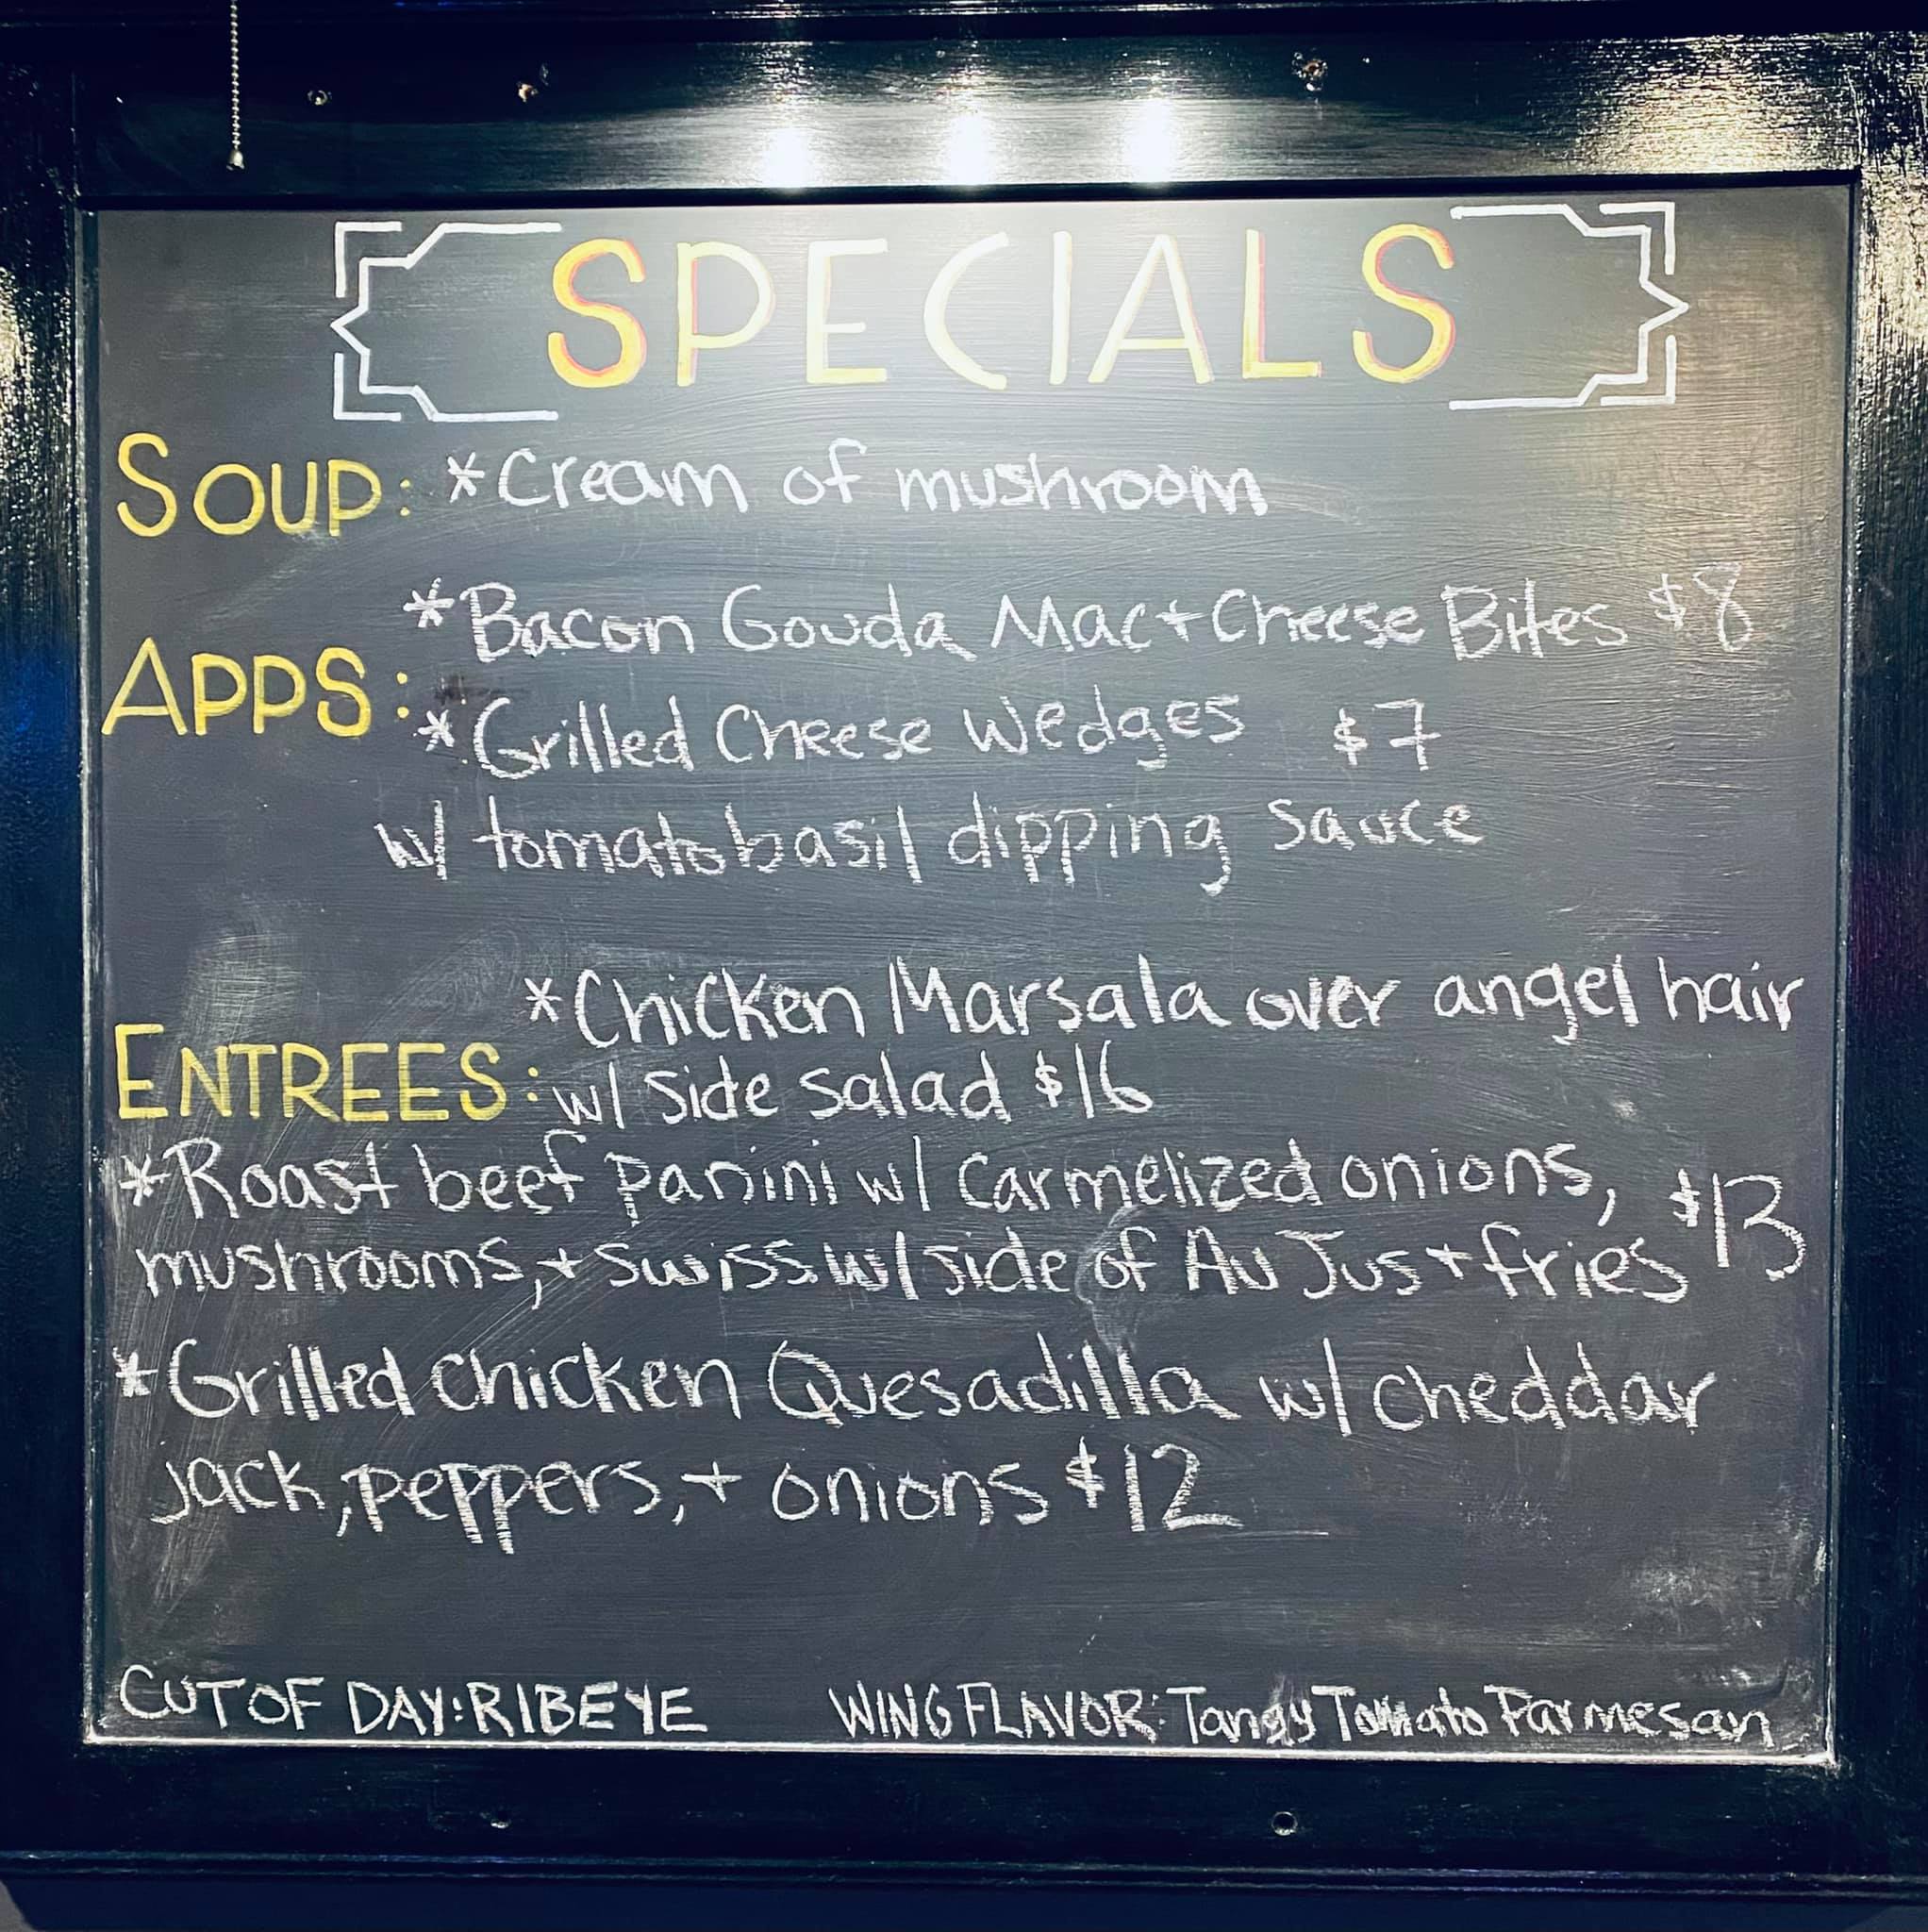 SPECIALS
SOUP: *Cream of mushroom
*Bacon Gouda Mac+Cheese Bites $8
APPS:
*Grilled Cheese Wedges $7
w/ tomato basil dipping sauce
*Chicken Marsala over angel hair
ENTREES: w/ side salad $16
*Roast beef panini w/ carmelized onions,
mushrooms, + swiss w/ side of Au Jus + fries $13
*Grilled Chicken Quesadilla w/ cheddar
jack, peppers, + onions $12
CUT OF DAY: RIBEYE WING FLAVOR: Tangy Tomato Parmesan